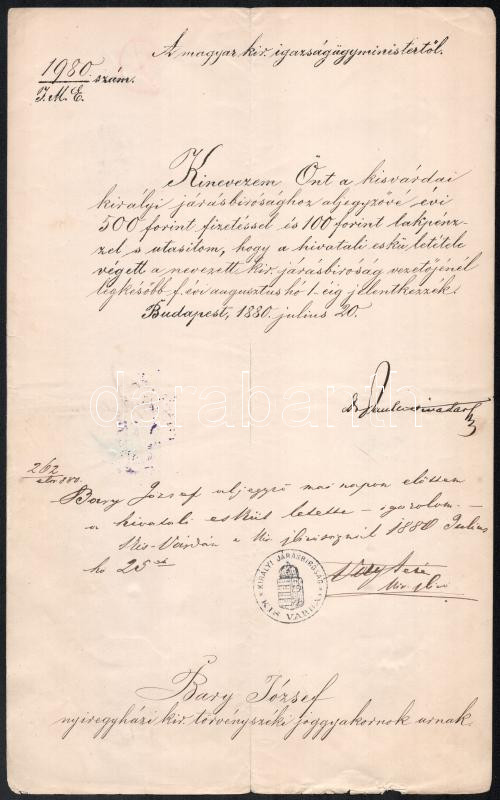 A magyar kir. igazságügyministertől.
1980. szám.
I. M. E.
Kinevezem Önt a kisvárdai
királyi járásbirósághoz aljegyzővé évi
500 forint fizetéssel és 100 forint lakpénz-
zel s utasitom, hogy a hivatali eskü letétele
végett a nevezett kir. járásbiróság vezetőjénél
legkésőbb f. évi augusztus hó 1-éig jelentkezzék.
Budapest, 1880. július 20.
Dr Pauler Tivadar
darabanth
262
eln 880.
Bary József aljegyző mai napon előttem
a hivatali esküt letette – igazolom –
Kis-Várdán a kir. jbiróságnál 1880 Julius
hó 25
KIRÁLYI JÁRÁSBIRÓSÁG
KIS VÁRDA
kir. jbiró
Bary József
nyiregyházi kir. törvényszéki joggyakornok urnak.